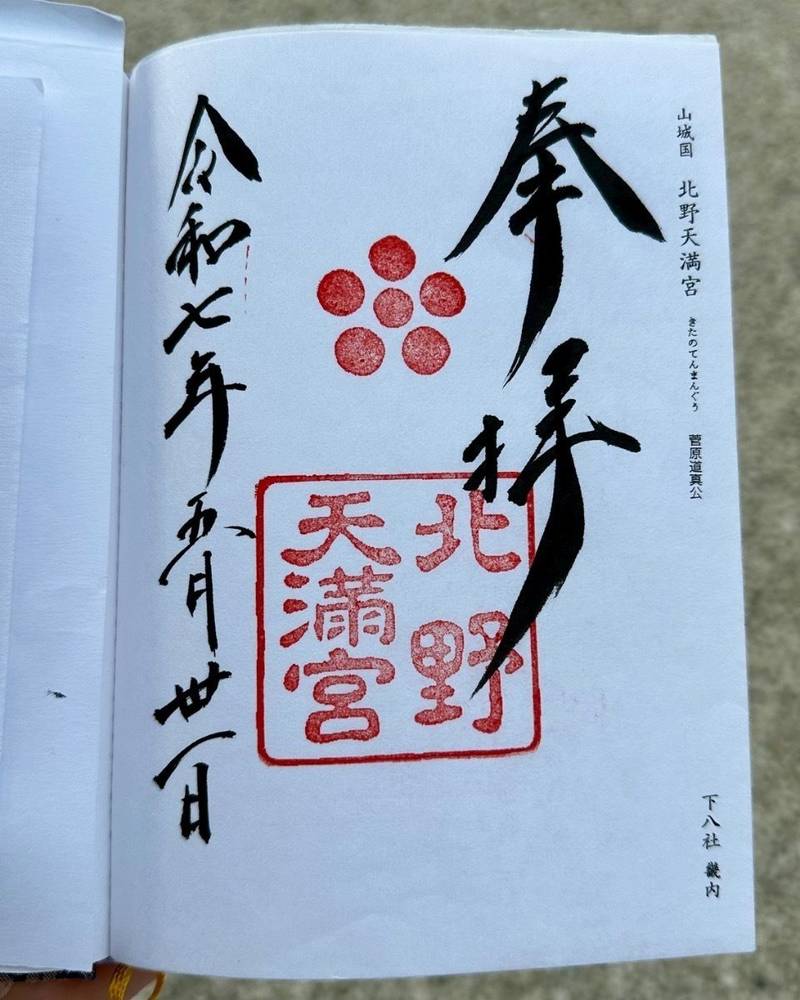 山城国 北野天満宮 きたのてんまんぐう 菅原道真公
下八社 畿内
奉拝
北野
天満宮
令和七年五月卅一日